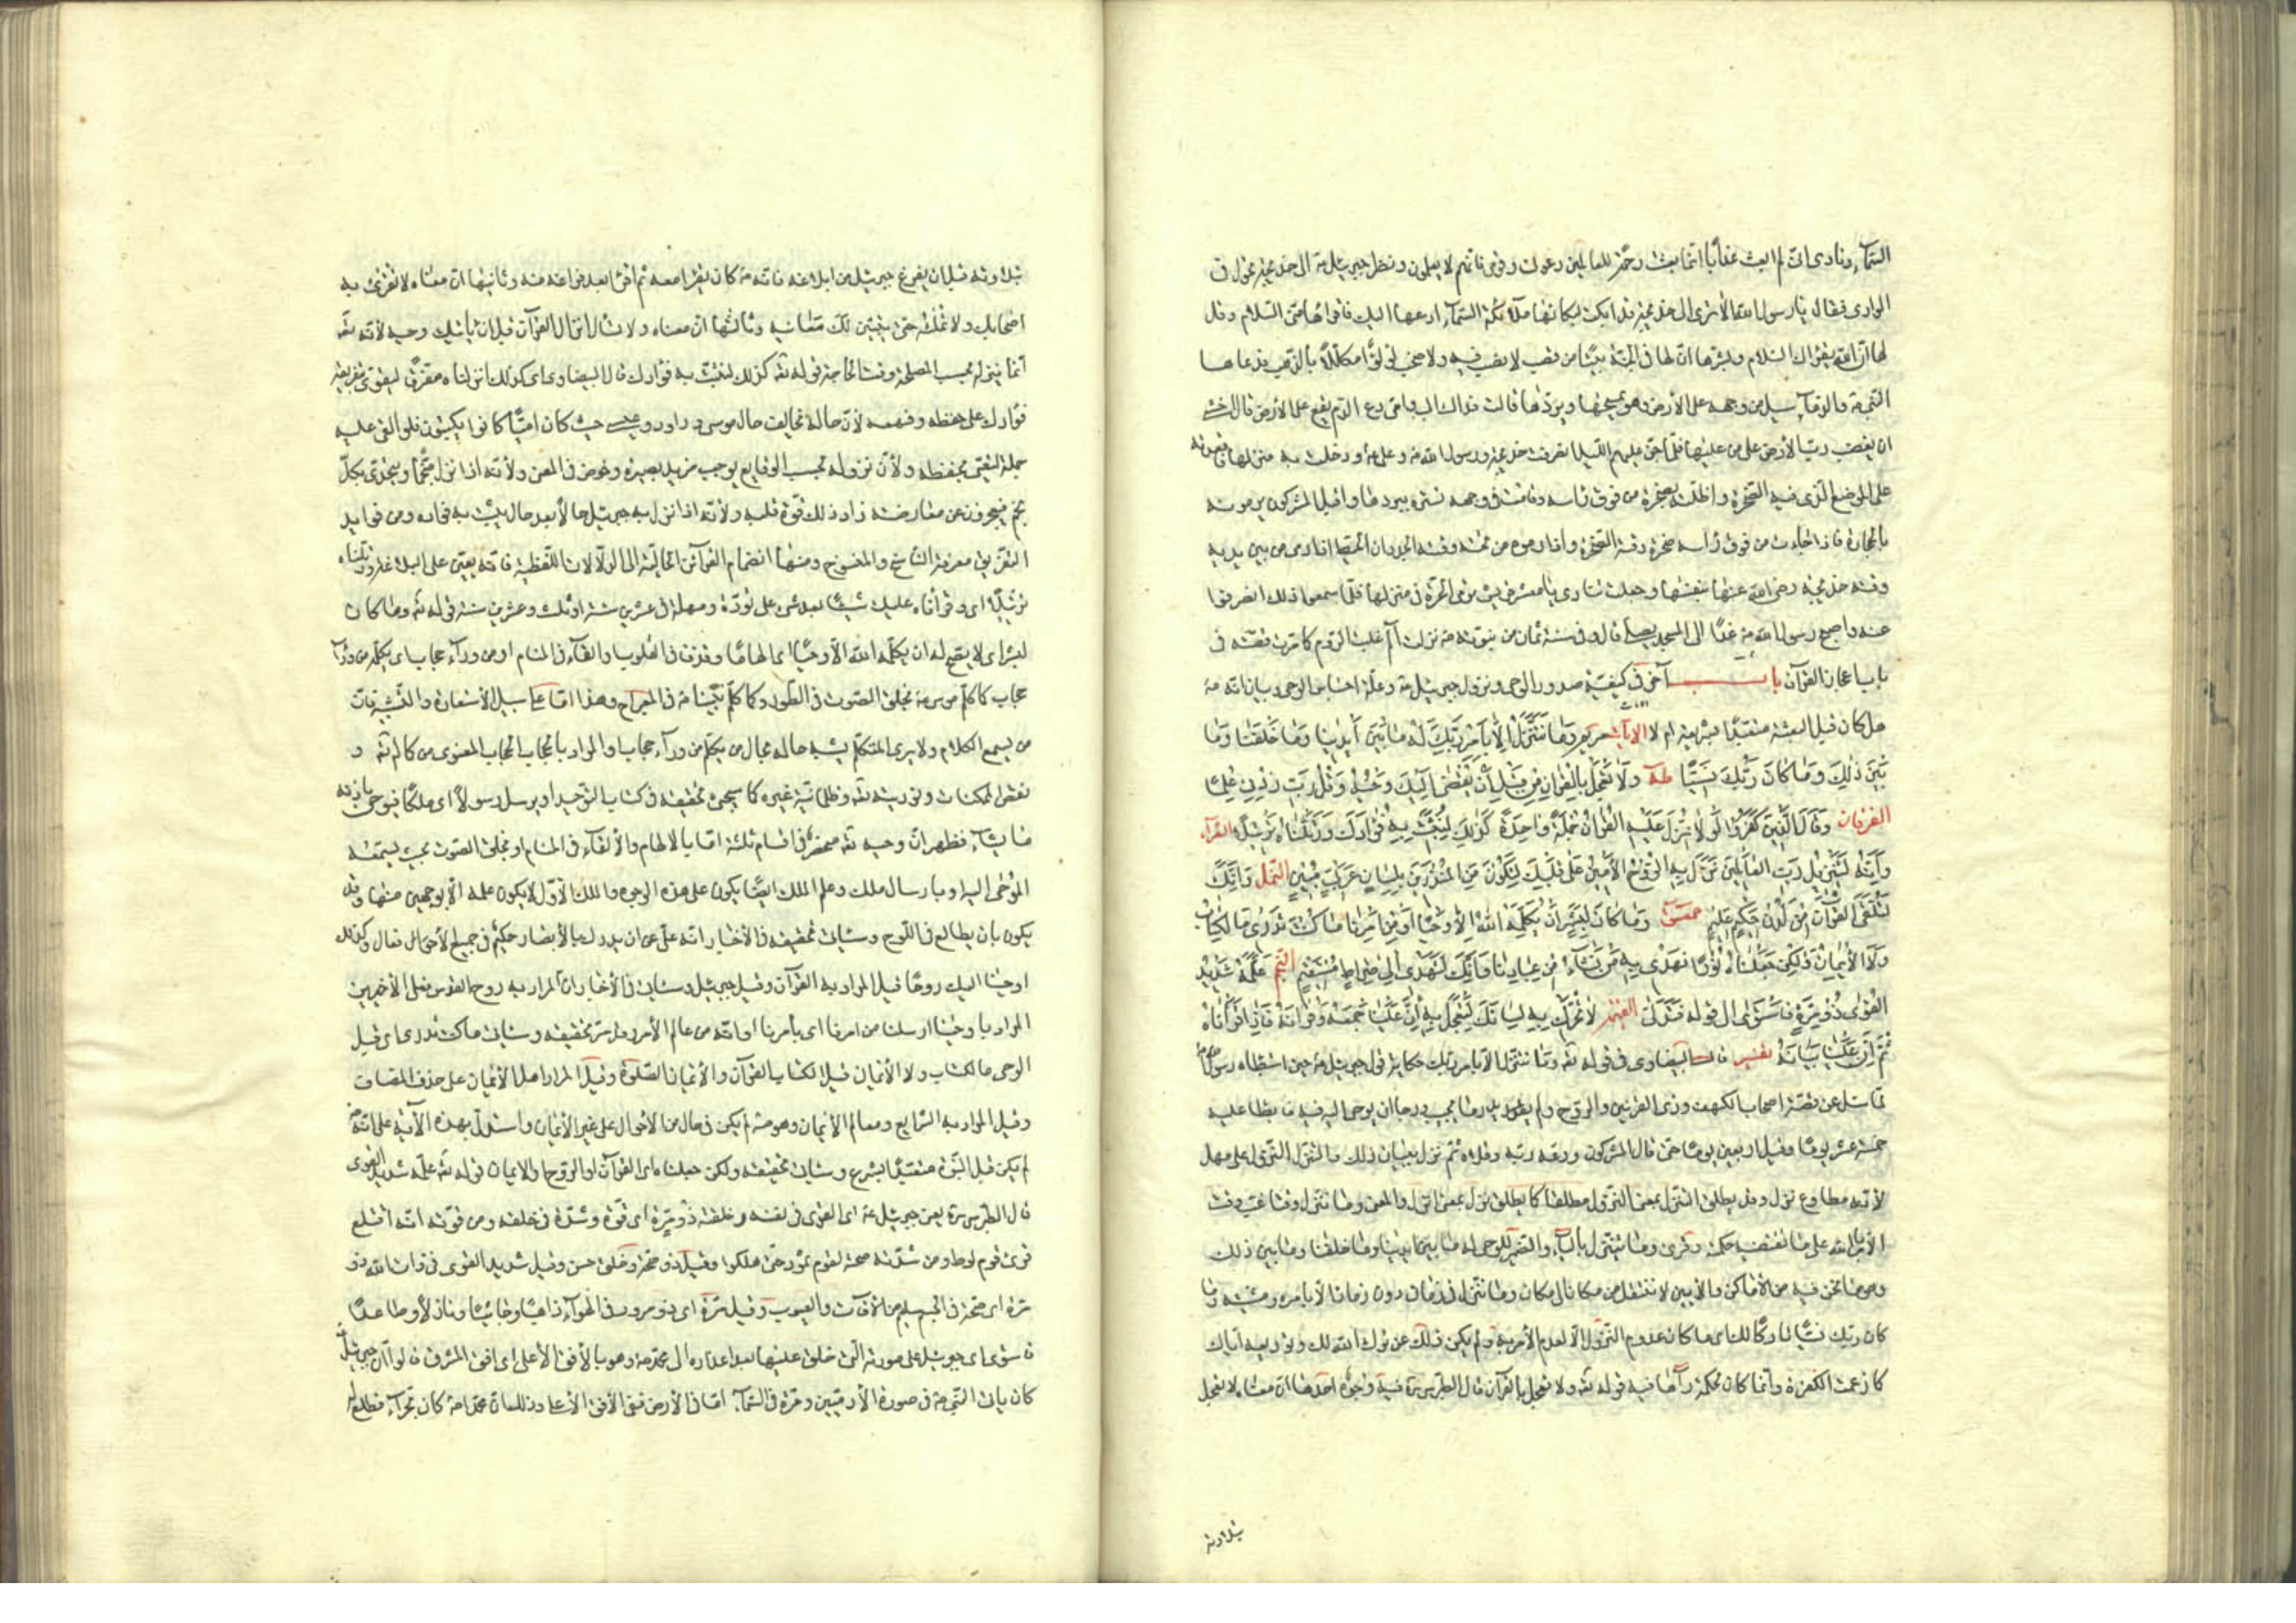 السماء ونادى انى لم ابعث عذابا انما بعثت رحمة للعالمين دعونى وقومى فانهم لا يعلمون ونظر جبرئيل ع الى خديجة تجول فى
الوادى فقال يا رسول الله الا ترى الى خديجة قد ابكت لبكائها ملائكة السماء ادعها اليك فاقرأها منى السلام وقل
لها ان الله يقرئك السلام وبشرها ان لها فى الجنة بيتا من قصب لا نصب فيه ولا صخب لؤلؤا مكللا بالذهب فدعاها
النبى ص والدماء تسيل من وجهه على الارض وهو يمسحها ويردها قالت فداك ابى وامى دع الدم يقع على الارض قال اخشى
ان يغضب رب الارض على من عليها فلما جن عليهم الليل انصرفت خديجة ورسول الله ص وعلى ع ودخلت به منزلها فاقعدته
على الموضع الذى فيه الصخرة واظلته بصخرة من فوق رأسه وقامت فى وجهه تستره ببردها واقبل المشركون يرمونه
بالحجارة فاذا جاءت من فوق رأسه صخرة وقته الصخرة واذا رموه من تحته وقته الجدران الحيط واذا رمى من بين يديه
وقته خديجة رضى الله عنها بنفسها وجعلت تنادى يا معشر قريش ترمى الحرة فى منزلها فلما سمعوا ذلك انصرفوا
عنه واصبح رسول الله ص وغدا الى المسجد يصلى قال وفى سنة ثمان من نبوته ص نزلت الم غلبت الروم كما مرت قصته فى
باب اعجاز القرآن باب آخر فى كيفية صدور الوحى ونزول جبرئيل ع وعلة احتباس الوحى وبيان انه ص
هل كان قبل البعثة متعبدا بشريعة ام لا الآيات مريم وَمَا نَتَنَزَّلُ اِلَّا بِاَمْرِ رَبِّكَ لَهُ مَا بَيْنَ اَيْدِينَا وَمَا خَلْفَنَا وَمَا
بَيْنَ ذٰلِكَ وَمَا كَانَ رَبُّكَ نَسِيًّا طه وَلَا تَعْجَلْ بِالْقُرْاٰنِ مِنْ قَبْلِ اَنْ يُقْضٰى اِلَيْكَ وَحْيُهُ وَقُلْ رَبِّ زِدْنِى عِلْمًا
الفرقان وَقَالَ الَّذِينَ كَفَرُوا لَوْلَا نُزِّلَ عَلَيْهِ الْقُرْاٰنُ جُمْلَةً وَاحِدَةً كَذٰلِكَ لِنُثَبِّتَ بِهِ فُؤَادَكَ وَرَتَّلْنَاهُ تَرْتِيلًا الشعراء
وَاِنَّهُ لَتَنْزِيلُ رَبِّ الْعَالَمِينَ نَزَلَ بِهِ الرُّوحُ الْاَمِينُ عَلٰى قَلْبِكَ لِتَكُونَ مِنَ الْمُنْذِرِينَ بِلِسَانٍ عَرَبِىٍّ مُبِينٍ النمل وَاِنَّكَ
لَتُلَقَّى الْقُرْاٰنَ مِنْ لَدُنْ حَكِيمٍ عَلِيمٍ حمعسق وَمَا كَانَ لِبَشَرٍ اَنْ يُكَلِّمَهُ اللّٰهُ اِلَّا وَحْيًا اَوْ مِنْ اَمْرِنَا مَا كُنْتَ تَدْرِى مَا الْكِتَابُ
وَلَا الْاِيمَانُ وَلٰكِنْ جَعَلْنَاهُ نُورًا نَهْدِى بِهِ مَنْ نَشَاءُ مِنْ عِبَادِنَا وَاِنَّكَ لَتَهْدِى اِلٰى صِرَاطٍ مُسْتَقِيمٍ النجم عَلَّمَهُ شَدِيدُ
الْقُوٰى ذُو مِرَّةٍ فَاسْتَوٰى الى قوله فَتَدَلّٰى القيمة لَا تُحَرِّكْ بِهِ لِسَانَكَ لِتَعْجَلَ بِهِ اِنَّ عَلَيْنَا جَمْعَهُ وَقُرْاٰنَهُ فَاِذَا قَرَأْنَاهُ
ثُمَّ اِنَّ عَلَيْنَا بَيَانَهُ تفسير قال البيضاوى فى قوله تعه وما نتنزل الا بامر ربك حكاية قول جبرئيل ع حين استبطأه رسول الله ص
لما سئل عن قصة اصحاب الكهف وذى القرنين والروح ولم يدر ما يجيب ورجا ان يوحى اليه فيه فابطا عليه
خمسة عشر يوما وقيل اربعين يوما حتى قال المشركون ودعه ربه وقلاه ثم نزل ببيان ذلك والتنزل النزول على مهل
لانه مطاوع نزل وقد يطلق التنزل بمعنى النزول مطلقا كما يطلق نزل بمعنى انزل والمعنى وما نتنزل وقتا غب وقت
الا بامر الله على ما تقتضيه حكمته وقرئ وما يتنزل بالياء والضمير للوحى له ما بين ايدينا وما خلفنا وما بين ذلك
وهو ما نحن فيه من الاماكن والاحايين لا ننتقل من مكان الى مكان وما نتنزل فى زمان دون زمان الا بامره ومشيته وما
كان ربك نسيا تاركا لك اى ما كان عدم النزول الا لعدم الامر به ولم يكن ذلك عن ترك الله لك وتوديعه اياك
كما زعمت الكفرة وانما كان لحكمة رآها فيه قوله تعه ولا تعجل بالقرآن قال الطبرسى ره فيه وجوه احدها ان معناه لا تعجل
بتلاوته
بتلاوته قبل ان يفرغ جبرئيل من ابلاغه فانه ص كان يقرأ معه ثم اقرأ بعد فراغه منه وثانيها ان معناه لا تقرئ به
اصحابك ولا تمله حتى يتبين لك معانيه وثالثها ان معناه ولا تسال انزال القرآن قبل ان يأتيك وحيه لانه تعه
انما ينزله بحسب المصلحة وقت الحاجة قوله تعه كذلك لنثبت به فؤادك قال البيضاوى اى كذلك انزلناه مفرقا لنقوى بتفريقه
فؤادك على حفظه وفهمه لان حاله يخالف حال موسى وداود وعيسى حيث كان اميا وكانوا يكتبون فلو القى عليه
جملة لتعيى بحفظه ولان نزوله بحسب الوقايع يوجب مزيد بصيرة وغوص فى المعنى ولانه اذا نزل منجما ويتحدى بكل
نجم فيعجزون عن معارضته زاد ذلك قوة قلبه ولانه اذا نزل به جبرئيل حالا بعد حال يثبت به فؤاده ومن فوايد
التفريق معرفة الناسخ والمنسوخ ومنها انضمام القرآئن الحالية الى الدلالات اللفظية فانه يعين على البلاغة ورتلناه
ترتيلا اى وقرأناه عليك شيئا بعد شئ على تؤدة ومهلة فى عشرين سنة او ثلث وعشرين سنة قوله تعه وما كان
لبشر اى لا يصح له ان يكلمه الله الا وحيا اى الهاما وقذفا فى القلوب والقاء فى المنام او من ورآء حجاب اى يكلمه من ورآء
حجاب كما كلم موسى ع بخلق الصوت فى الطور وكما كلم نبينا ص فى المعراج وهذا اما على سبيل الاستعارة والتشبيه فان
من يسمع الكلام ولا يرى المتكلم يشبه حاله بحال من يكلم من ورآء حجاب او المراد بالحجاب الحجاب المعنوى من كماله تعه و
نقص الممكنات ونوريته تعه وظلمانية غيره كما سيجئ تحقيقه فى كتاب التوحيد او يرسل رسولا اى ملكا فيوحى باذنه
ما يشاء فظهر ان وحيه تعه منحصر فى اقسام ثلثة اما بالالهام والالقاء فى المنام او بخلق الصوت بحيث يسمعه
الموحى اليه او بارسال ملك وعلم الملك ايضا يكون على هذه الوجوه والملك الاول لا يكون علمه الا بوجهين منها وقد
يكون بان يطالع فى اللوح وسيأتى تحقيقه فى الاخبار انه على عن ان يدرك بالابصار حكيم فى جميع الافعال تعال وكذلك
اوحينا اليك روحا قيل المراد به القرآن وقيل جبرئيل وسيأتى فى الاخبار ان المراد به روح القدس فعلى الاخيرين
المراد باوحينا ارسلنا من امرنا اى بأمرنا او انه من عالم الامر وقد مر تحقيقه وسيأتى ما كنت تدرى اى قبل
الوحى ما الكتاب ولا الايمان قيل الكتاب القرآن والايمان الصلوة وقيل المراد اهل الايمان على حذف المضاف
وقيل المراد به الشرايع ومعالم الايمان وهو ص لم يكن فى حال من الاحوال على غير الايمان واستدل بهذه الآية على انه ص
لم يكن قبل النبوة متعبدا بشرع وسيأتى تحقيقه ولكن جعلناه اى القرآن او الروح والايمان قوله تعه علمه شديد القوى
قال الطبرسى ره يعنى جبرئيل ع اى القوى فى نفسه وخلقته ذو مرة اى قوة وشدة فى خلقه ومن قوته انه اقتلع
قرى قوم لوط ومن شدته صيحة لقوم ثمود حتى هلكوا وقيل ذو صحة وخلق حسن وقيل شديد القوى فى ذات الله ذو
مرة اى صحة فى الجسم سليم من الآفات والعيوب وقيل مرة اى ذو مرور فى الهوآء ذاهبا وجائيا ونازلا وصاعدا
فاستوى اى جبرئيل على صورته التى خلق عليها بعد انحداره الى محمد ص وهو بالافق الاعلى اى افق المشرق قالوا ان جبرئيل
كان يأتى النبى ص فى صورة الآدميين ومرة فى السماء اما فى الارض ففى الافق الاعلى وذلك ان محمدا ص كان بحراء فطلع له